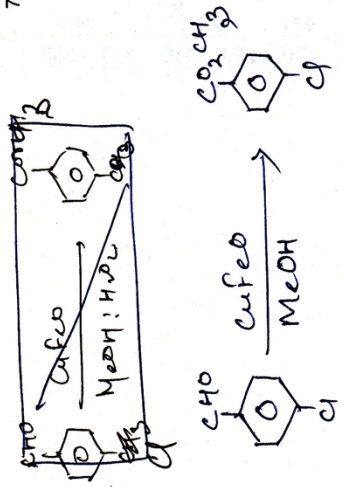 CHO
CuFeO
MeOH : H2O2
CH3
Cl
CHO
Cl
CuFeO
MeOH
CO2CH3
Cl